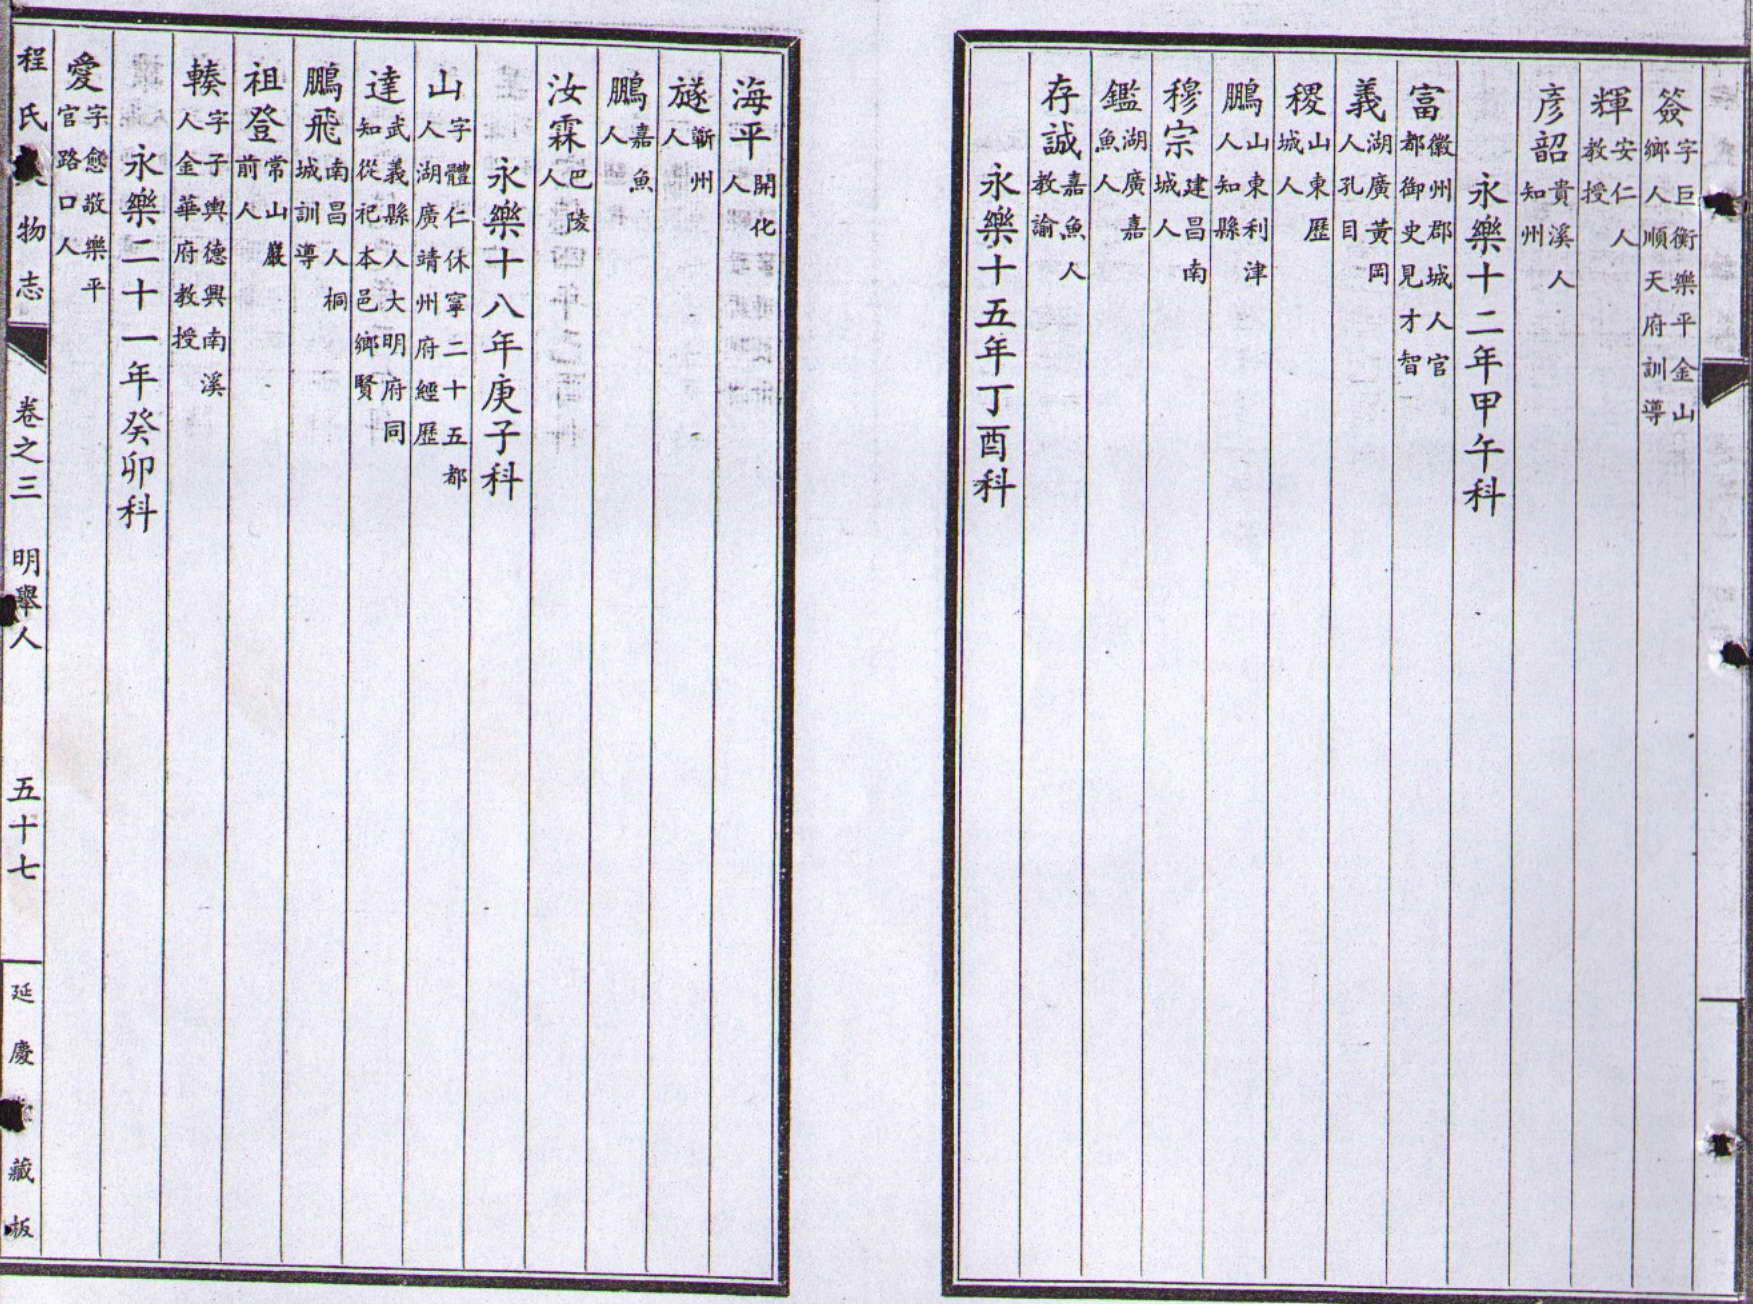 簽 字巨衡樂平金山鄉人順天府訓導
輝 安仁人教授
彥韶 貴溪人知州
永樂十二年甲午科
富 徽州郡城人官都御史見才智
義 湖廣黃岡人孔目
稷 山東歷城人
鵬 山東利津人知縣
穆宗 建昌南城人
鑑 湖廣嘉魚人
存誠 嘉魚人教諭
永樂十五年丁酉科
海平 開化人
㸂 蘄州人
鵬 嘉魚人
汝霖 巴陵人
永樂十八年庚子科
山 字體仁休寧二十五都人湖廣靖州府經歷
達 武義縣人大明府同知從祀本邑鄉賢
鵬飛 南昌人桐城訓導
祖登 常山嚴前人
輳 字子輿德興南溪人金華府教授
永樂二十一年癸卯科
愛 字愆敬樂平官路口人
程氏人物志 卷之三 明舉人 五十七 延慶堂藏板